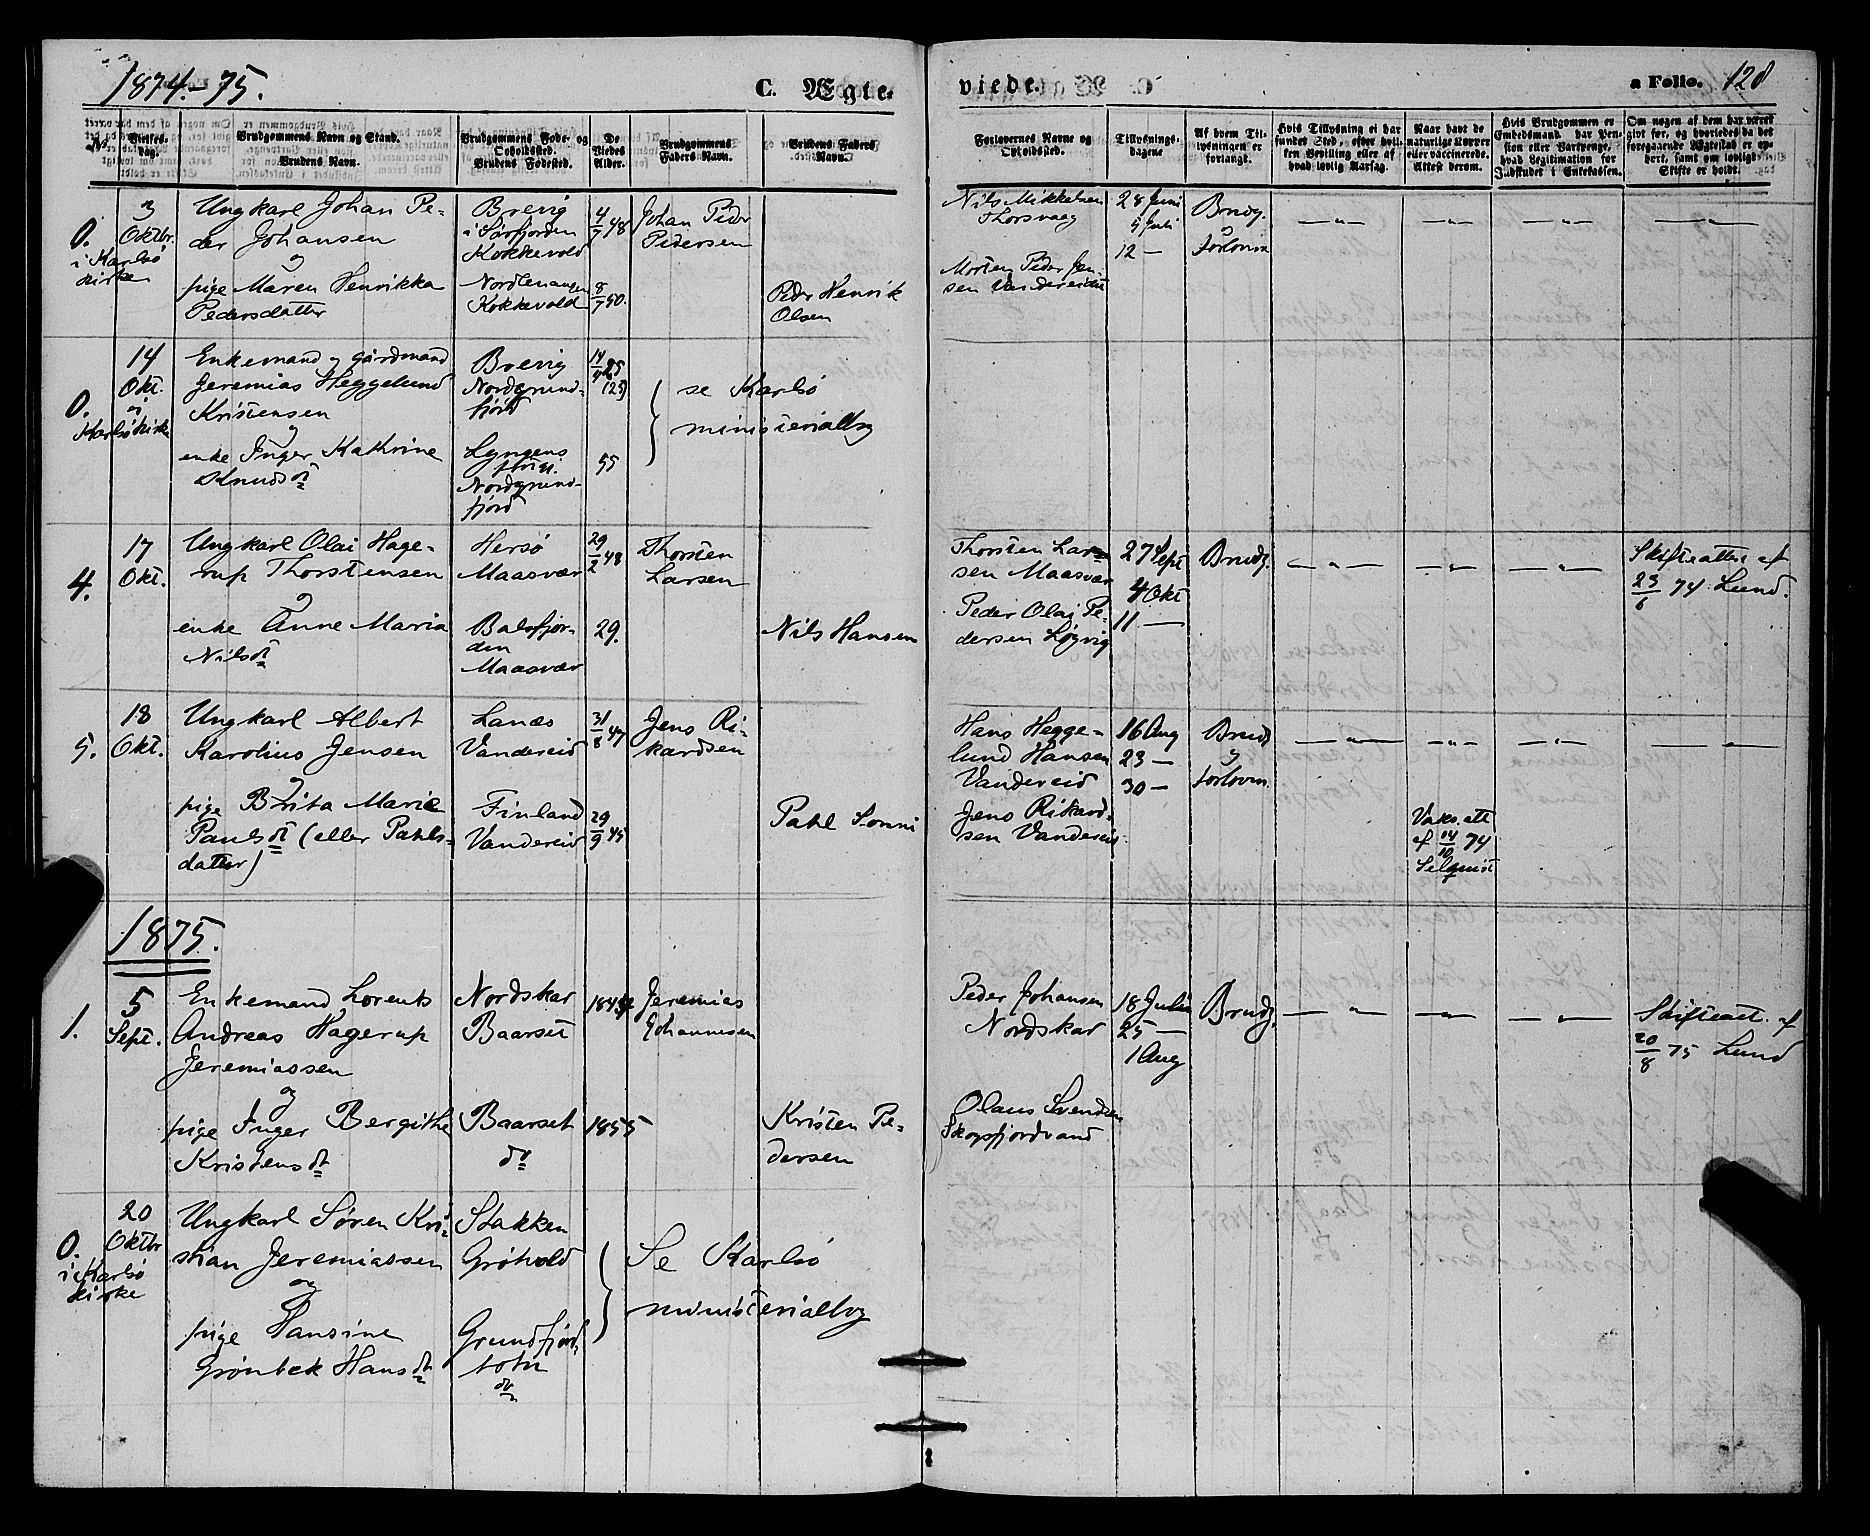 1874-75.
C. Ægte-
viede.
a Folio. 128
No.
Vielses-
dag.
Brudgommens Navn og Stand.
Brudens Navn.
Brudgommens Føde- og
Opholdssted.
Brudens Fødested.
De
Viedes
Alder.
Brudgommens
Faders Navn.
Brudens Faders
Navn.
Forlovernes Navne og
Opholdssted.
Tillysnings-
dagene
Af hvem Til-
lysningen er
forlangt.
Hvis Tillysning ei har
fundet Sted, efter hvil-
ken Bevilling eller af
hvad lovlig Aarsag.
Naar havt de
naturlige Kopper
eller vaccinerede.
Attest derom.
Hvis Brudgommen er
Embedsmand, har Pen-
sion eller Vartpenge,
hvad Legitimation for
Indskudet i Enkekassen.
Om nogen af dem har været
gift før, og hvorledes da det
foregaaende Ægteskab er op-
hørt, samt om lovligt
Skifte er holdt.
0.
i Karlsö
kirke
3
Oktbr.
Ungkarl Johan Pe-
der Johansen
og
pige Maren Henrikka
Pedersdatter
Brevig
i Sörfjorden
Kokkevold
Nordlenangen
Kokkevold
4/7 48
8/7 50.
Johan Peder
Pedersen
Peder Henrik
Olsen
Nils Mikkelsen
Thorsvaag
Morten Peder Jen-
sen Vandereidet
28 Juni
5 Juli
12 —
Brudg.
og
Forloven
— " —
— " —
— " —
— " —
0.
14
Okt.
i
Karlsö kirke
Enkemand og gårdmand
Jeremias Heggelund
Kristensen
og
enke Inger Kathrine
Knudsdt
Brevig
Nordgrund-
fjord
Lyngens
Nordgrund-
fjord
55
se Karlsö
ministerialbog
4.
17
Okt.
Ungkarl Olai Hage-
rup Thorstensen
og
enke Anne Maria
Nilsdt
Hersö
Maasvær
Balsfjor-
den
Maasvær
29/2 48
29.
Thorsten
Larsen
Nils Hansen
Thorsten Lar-
sen Maasvær
Peder Olai Pe-
dersen Løgvig
27 Sept
4 Okt
11 —
Brudg.
— " —
— " —
— " —
Skifteattes af
23/6 74 Lund.
5.
18
Okt.
Ungkarl Albert
Karolius Jensen
og
pige Brita Marie
Paulsdt (eller Pahls-
datter)
Lanæs
Vandereid
Finland
Vandereid
31/8 47
29/9 45
Jens Ri-
kardsen
Pahl Sonni
Hans Hegge-
lund Hansen
Vandereid
Jens Rikard-
sen Vandereid
16 Aug
23 —
30 —
Brudg
og
Forloven.
— " —
— " —
— " —
Vaks. att
af 14/10 74
Selqvist
1875.
1.
5
Sept.
Enkemand Lorents
Andreas Hagerup
Jeremiassen
og
pige Inger Bergithe
Kristensdt
Nordskar
Baarset
Baarset
do
1855
Jeremias
Johannesen
Kristen Pe-
dersen
Peder Johansen
Nordskar
Olaus Svendsen
Skogsfjordvand
18 Juli
25 —
1 Aug
Brudg.
— " —
— " —
— " —
Skifteatt. af
20/8 75 Lund
0.
i Karlsö
kirke
20
Oktbr
Ungkarl Søren Kri-
stian Jeremiassen
og
pige Hansine
Grønbek Hansdt
Stakken
Gröhold
Grundfjord
botn
do
Se Karlsö
ministerialbog